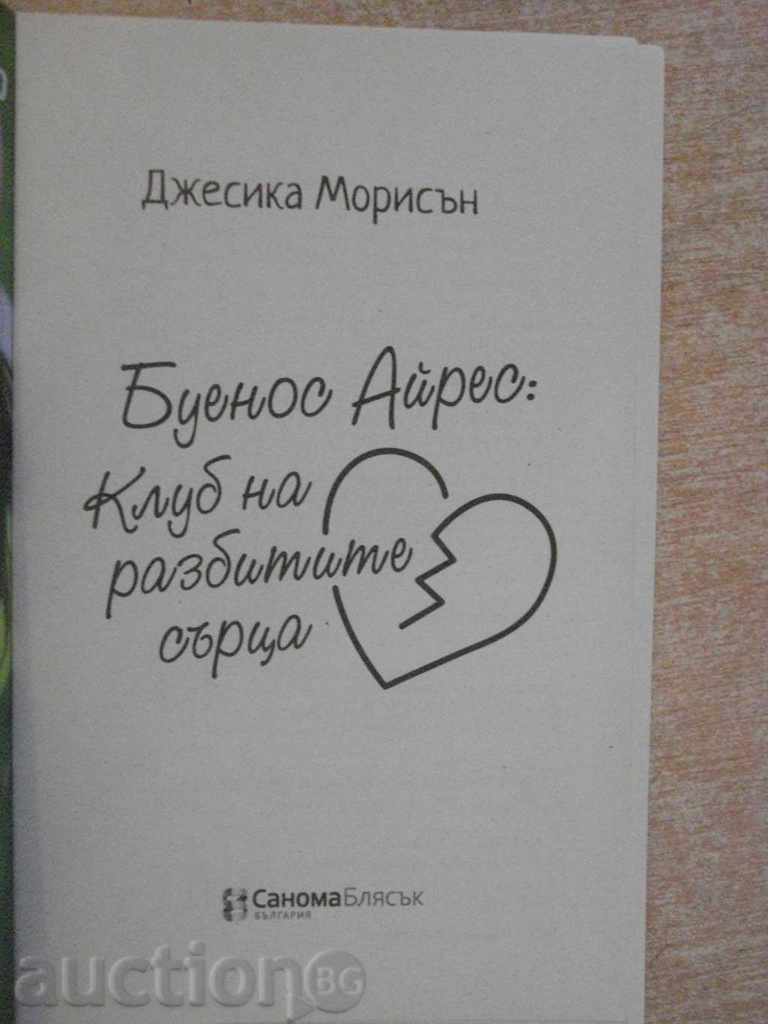 Джесика Морисън
Буенос Айрес:
Клуб на
разбитите
сърца
СаномаБлясък
БЪЛГАРИЯ
auction BG